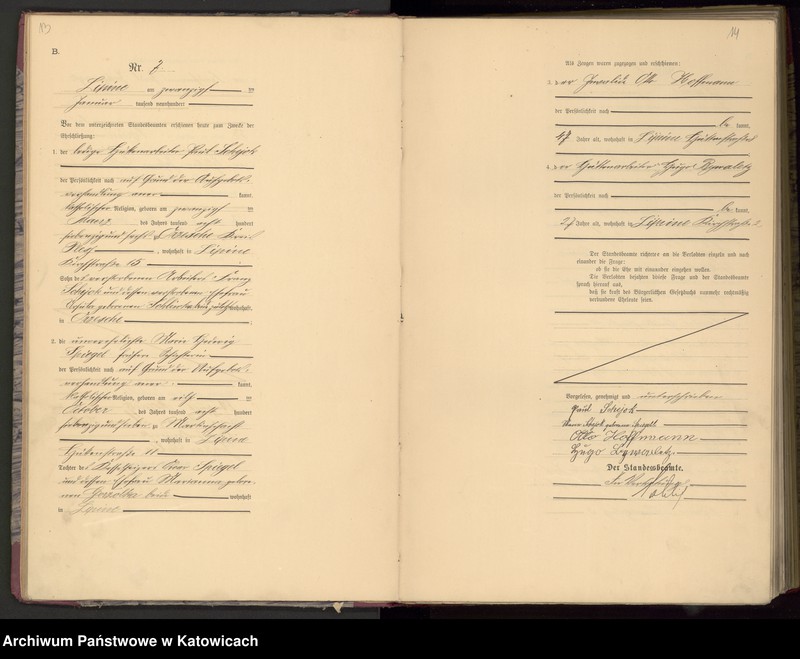 13
B.
Nr. 7
Lipine am zwanzigsten
Januar tausend neunhundert
Vor dem unterzeichneten Standesbeamten erschienen heute zum Zweck der
Eheschließung:
1. der ledige Hüttenarbeiter Paul Schejok
der Persönlichkeit nach auf Grund der Aufgebots-
verhandlung aner- kannt,
katholischer Religion, geboren am zwanzigsten
März des Jahres tausend acht hundert
siebenzig und sechs zu Orzesche Kreis
Pleß, wohnhaft in Lipine
Kirchstraße 15
Sohn des verstorbenen Arbeiters Franz
Schejok und dessen verstorbenen Ehefrau
geborenen
in Orzesche
2. die unverehelichte Marie Hedwig
Spiegel
der Persönlichkeit nach auf Grund der Aufgebots-
verhandlung aner- kannt,
katholischer Religion, geboren am
October des Jahres tausend acht hundert
siebenzig und sieben zu
, wohnhaft in Lipine
Hüttenstraße 11
Tochter des Spiegel
und dessen Ehefrau Marianna gebore-
nen beide wohnhaft
in Lipine
14
Als Zeugen waren zugezogen und erschienen:
3. der Invalide Otto Hoffmann
der Persönlichkeit nach
be kannt,
47 Jahre alt, wohnhaft in Lipine Hüttenstraße
4. der Hüttenarbeiter Hugo
der Persönlichkeit nach
be kannt,
27 Jahre alt, wohnhaft in Lipine Kirchstraße 2
Der Standesbeamte richtete an die Verlobten einzeln und nach
einander die Frage:
ob sie die Ehe mit einander eingehen wollen.
Die Verlobten bejahten diese Frage und der Standesbeamte
sprach hierauf aus,
daß sie kraft des Bürgerlichen Gesetzbuchs nunmehr rechtmäßig
verbundene Eheleute seien.
Vorgelesen, genehmigt und unterschrieben
Paul Schejok
Marie Schejok, geborene Spiegel
Otto Hoffmann
Hugo
Der Standesbeamte.
In Vertretung
Archiwum Państwowe w Katowicach